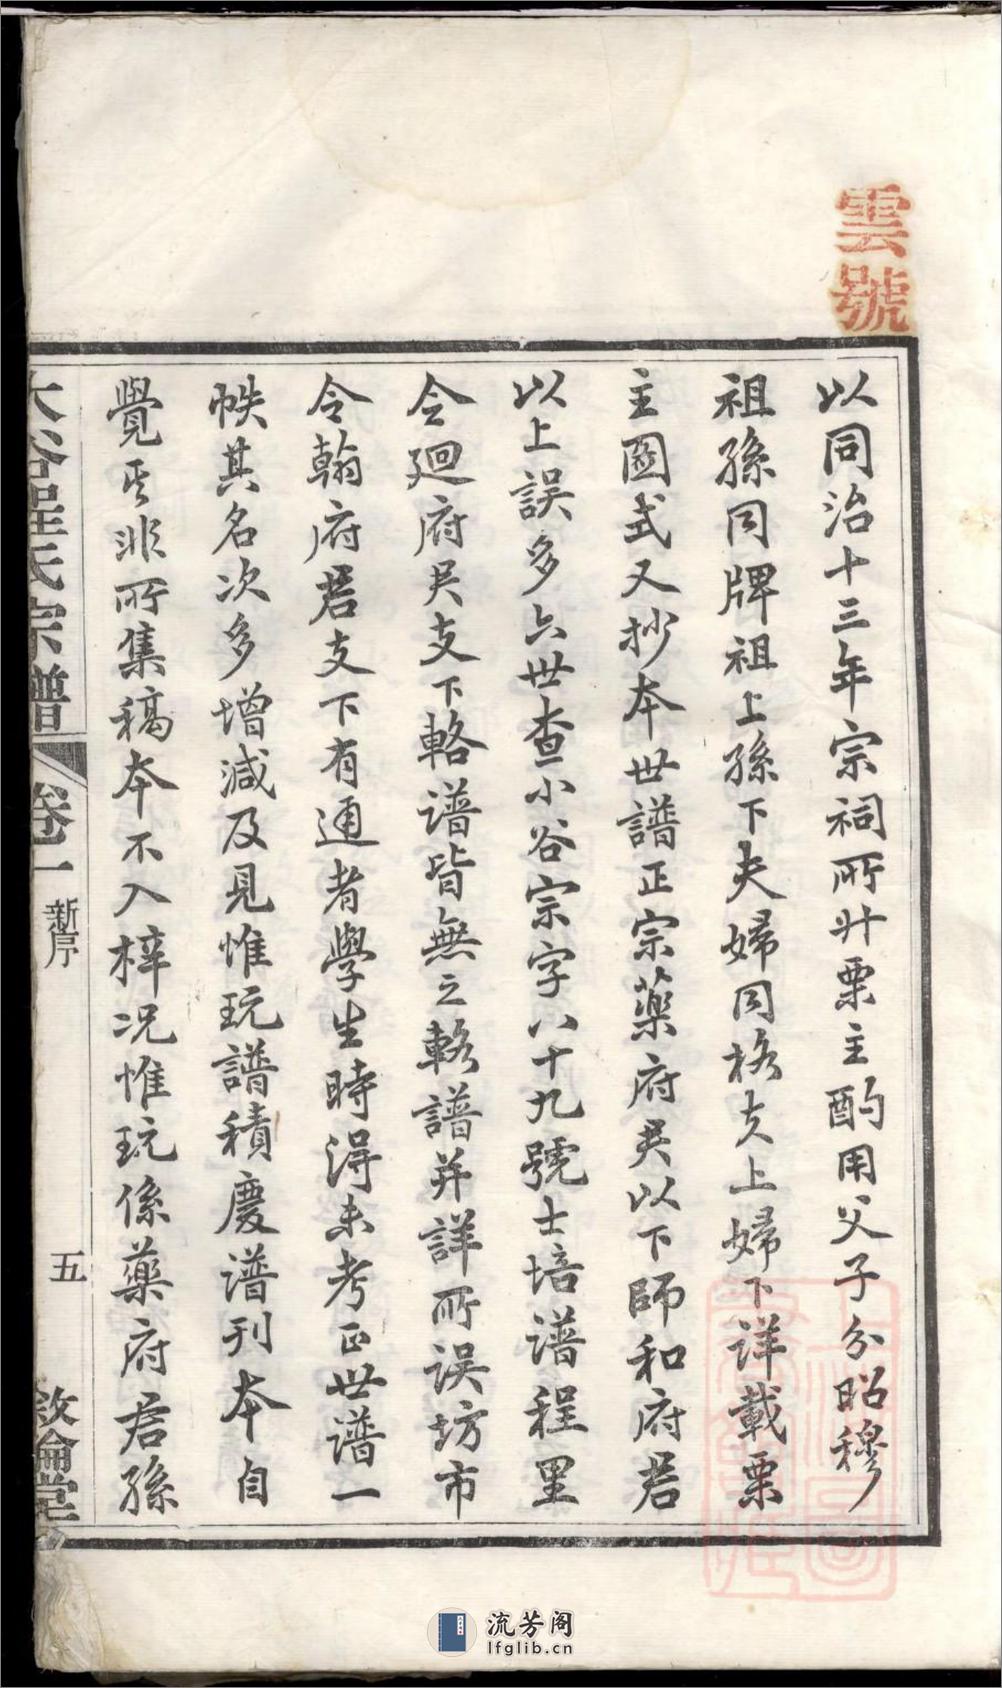 雲號
以同治十三年宗祠所升栗主酌用父子分昭穆
祖孫同牌祖上孫下夫婦同格夫上婦下詳載栗
主圖式又抄本世譜正宗藥府君以下師和府君
以上誤多六世查小谷宗字八十九號士培譜程里
令廻府君支下輅譜皆無之輅譜并詳所误坊市
令翰府君支下有通者學生時淂未考正世譜一
帙其名次多增減及見惟玩譜積慶譜刊本自
覺其非所集稿本不入梓况惟玩係藥府君孫
大谷程氏宗譜
卷一
新序
五
敘倫堂
流芳阁
lfglib.cn